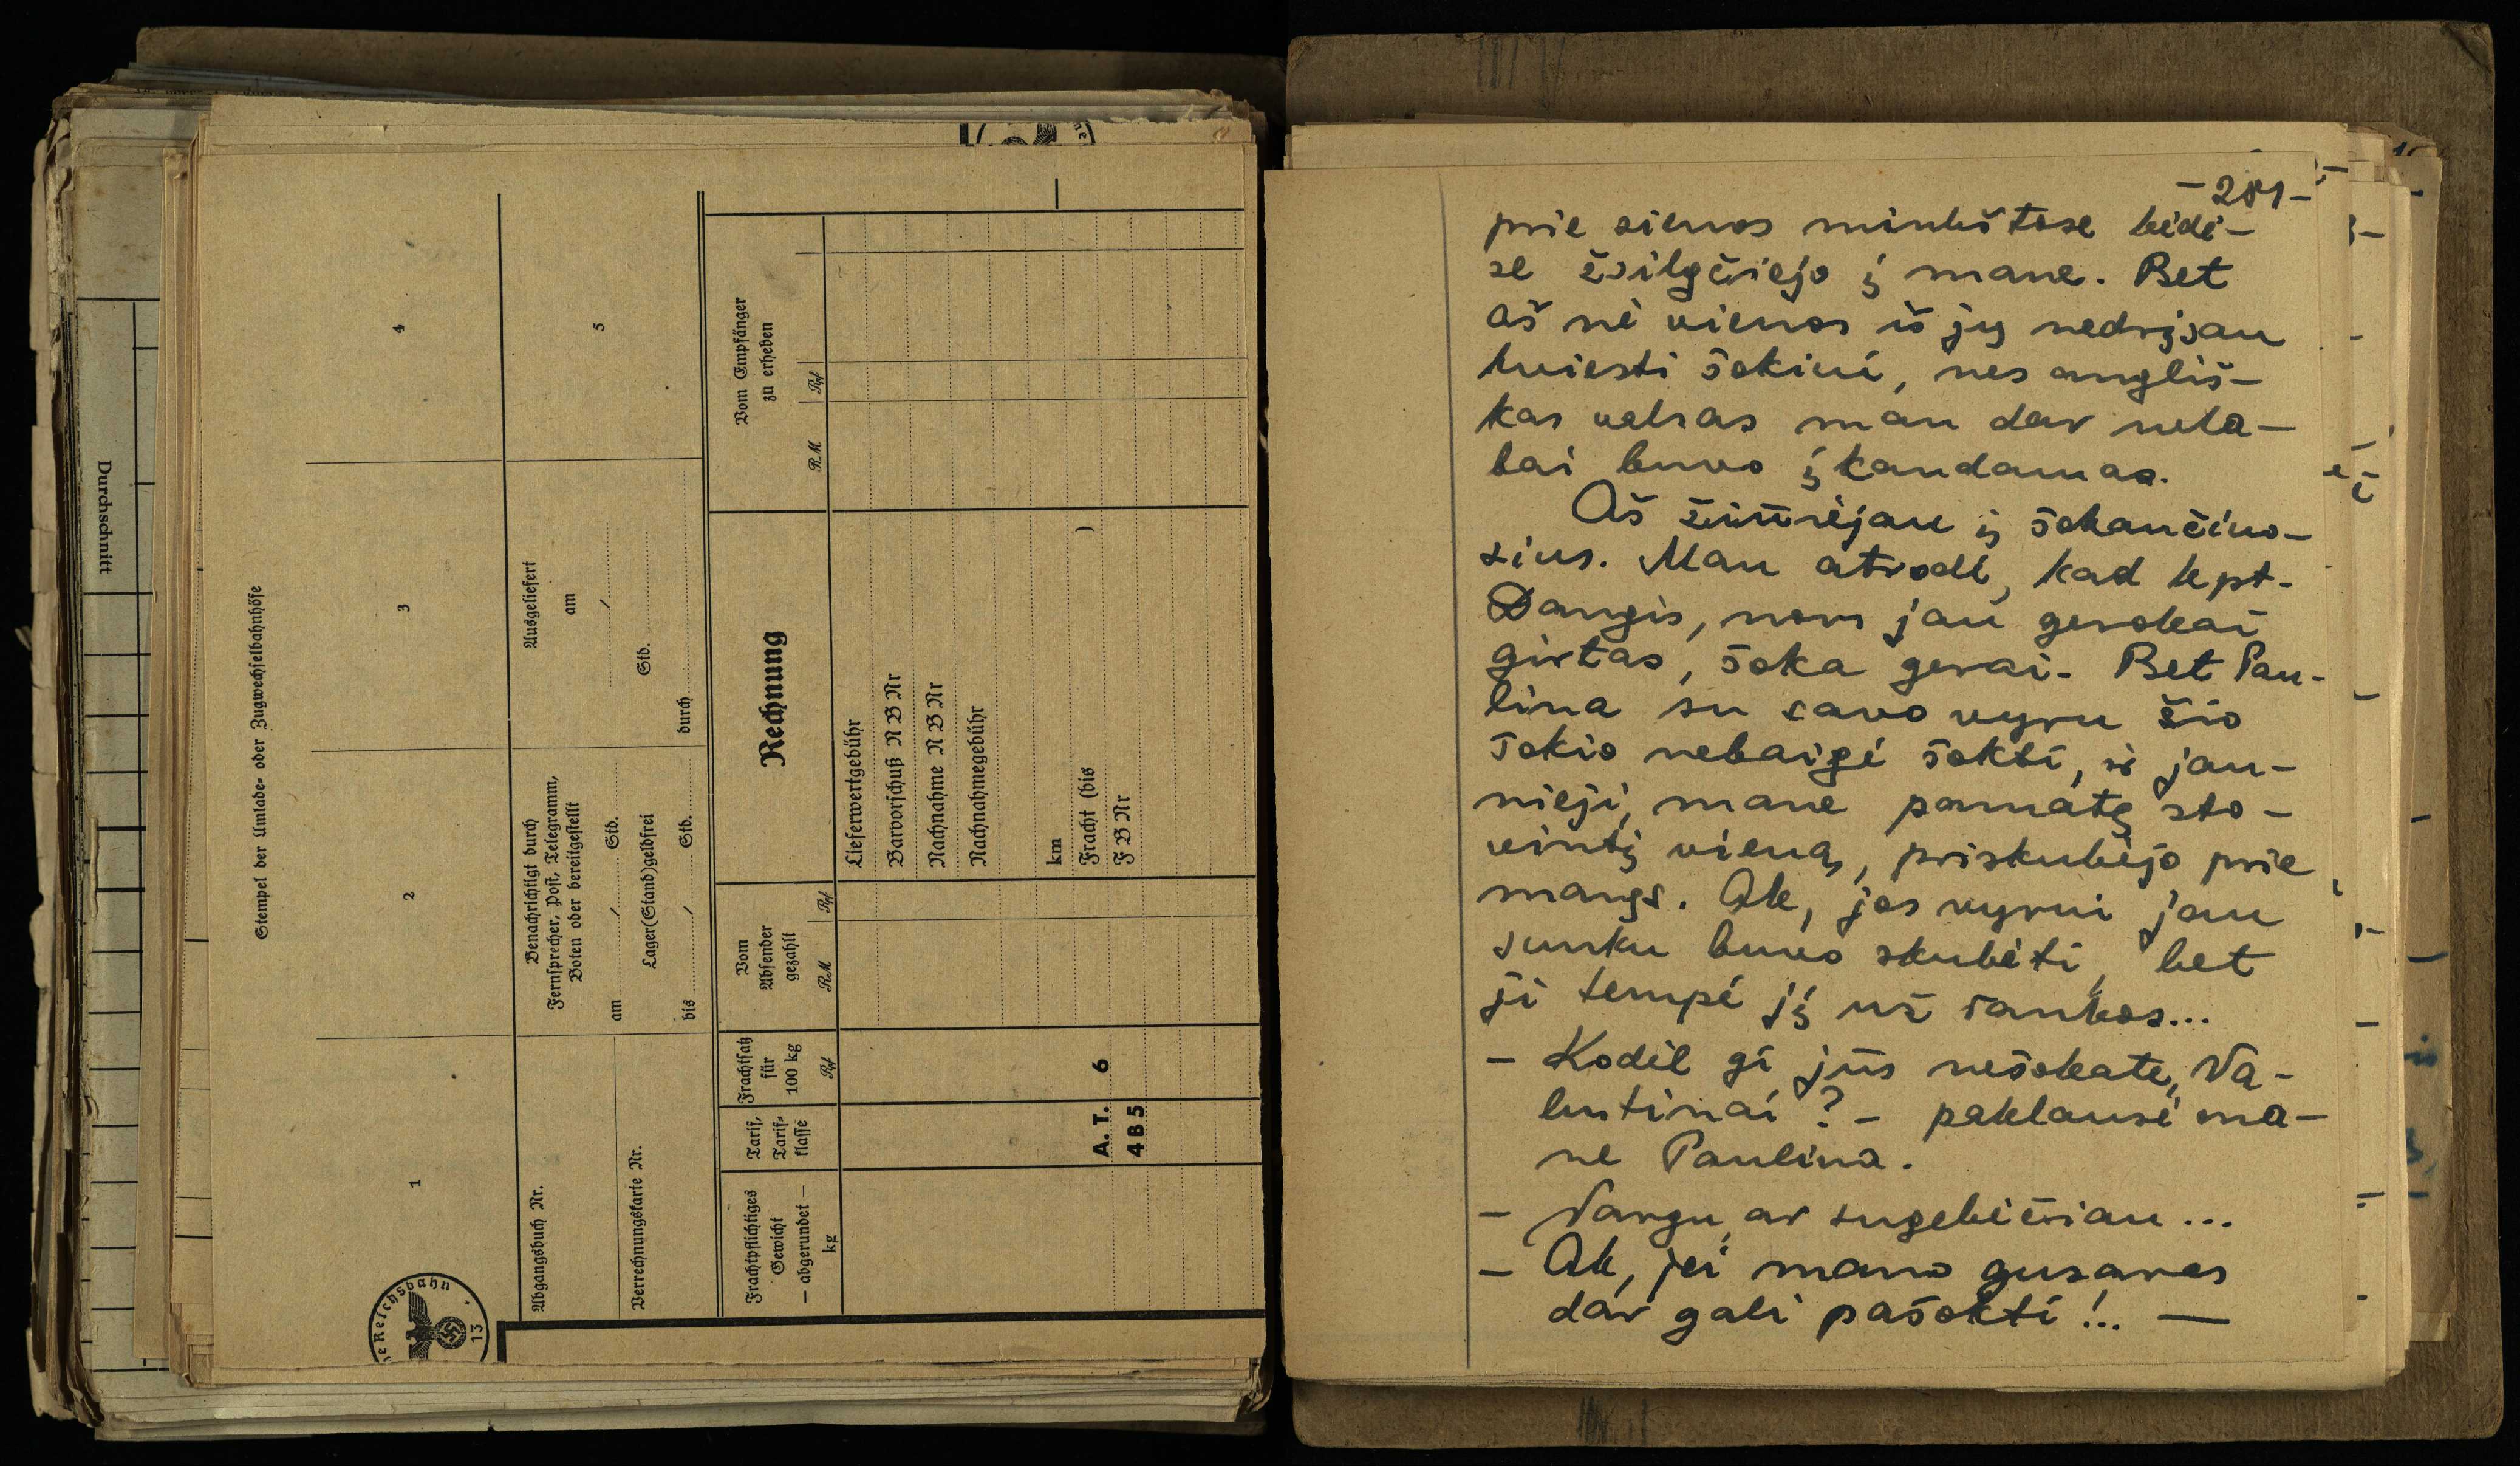 Durchschnitt
Stempel der Umlade- oder Zugwechselbahnhöfe
1
2
3
4
Abgangsbuch Nr.
Verrechnungskarte Nr.
Benachrichtigt durch
Fernsprecher, Post, Telegramm,
Boten oder bereitgestellt
am / Std.
Lager(Stand)geldfrei
bis / Std.
Ausgeliefert
am
/
Std.
durch
5
Frachtpflichtiges
Gewicht
— abgerundet —
kg
Tarif,
Tarif-
klasse
Frachtsatz
für
100 kg
Rpf
Vom
Absender
gezahlt
RM Rpf
Rechnung
Vom Empfänger
zu erheben
RM Rpf
Lieferwertgebühr
Barvorschuß N B Nr
Nachnahme N B Nr
Nachnahmegebühr
km
A. T. 6 Fracht (bis )
4 B 5 F B Nr
eReichsbahn
13
-281-
prie sienos minkštose kėdė-
se žvilgčiojo į mane. Bet
aš nė vienos iš jų nedrįsau
kviesti šokiui, nes angliš-
kas valsas man dar nela-
bai buvo įkandamas.
Aš žiūrėjau į šokančiuo-
sius. Man atrodė, kad kpt.
Daugis, nors jau gerokai
girtas, šoka gerai. Bet Pau-
lina su savo vyru šio
šokio nebaigė šokti, ir jau-
nieji, mane pamatę sto-
vintį vieną, priskubėjo prie
manęs. Ak, jos vyrui jau
sunku buvo skubėti, bet
ji tempė jį už rankos...
- Kodėl gi jūs nešokate, Va-
lentinai? - paklausė ma-
ne Paulina.
- Vargu, ar sugebėčiau...
- Ak, jei mano gusaras
dar gali pašokti!.. —